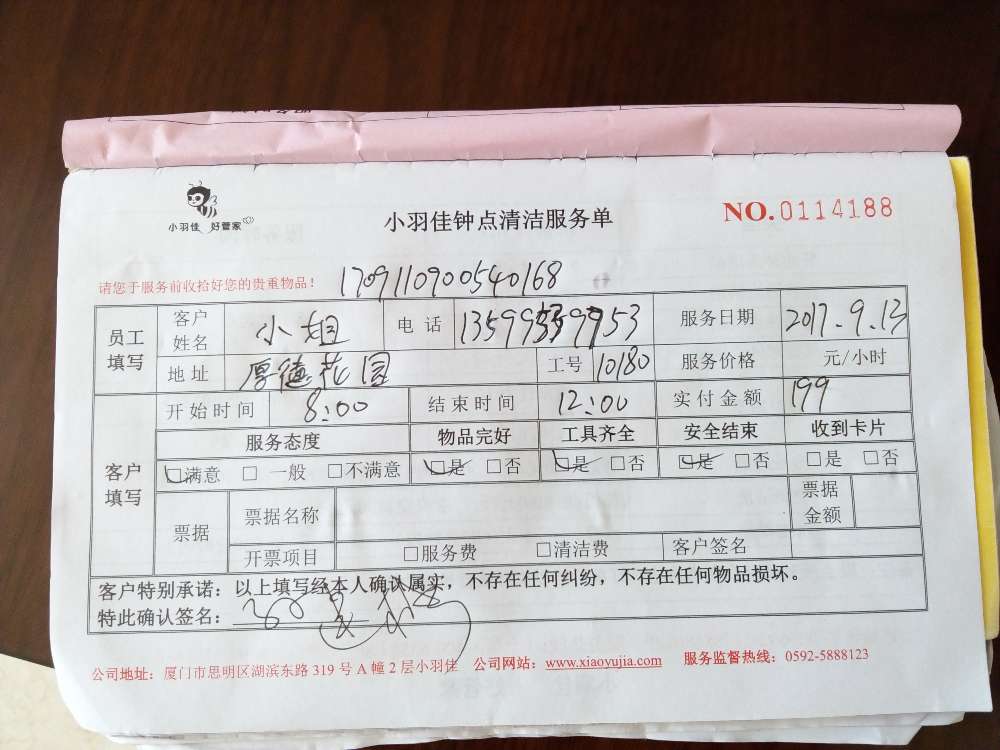 小羽佳 好管家
小羽佳钟点清洁服务单
NO.0114188
请您于服务前收拾好您的贵重物品！ 1709110900540168
员工填写 客户姓名 小姐 电话 服务日期 2017.9.13
地址 厚德花园 工号 10180 服务价格 元/小时
客户填写 开始时间 8:00 结束时间 12:00 实付金额 199
服务态度 物品完好 工具齐全 安全结束 收到卡片
☑满意 □一般 □不满意 ☑是 □否 ☑是 □否 ☑是 □否 □是 □否
票据 票据名称 票据金额
开票项目 □服务费 □清洁费 客户签名
客户特别承诺：以上填写经本人确认属实，不存在任何纠纷，不存在任何物品损坏。
特此确认签名：
公司地址：厦门市思明区湖滨东路 319 号 A 幢 2 层小羽佳 公司网站：www.xiaoyujia.com 服务监督热线：0592-5888123